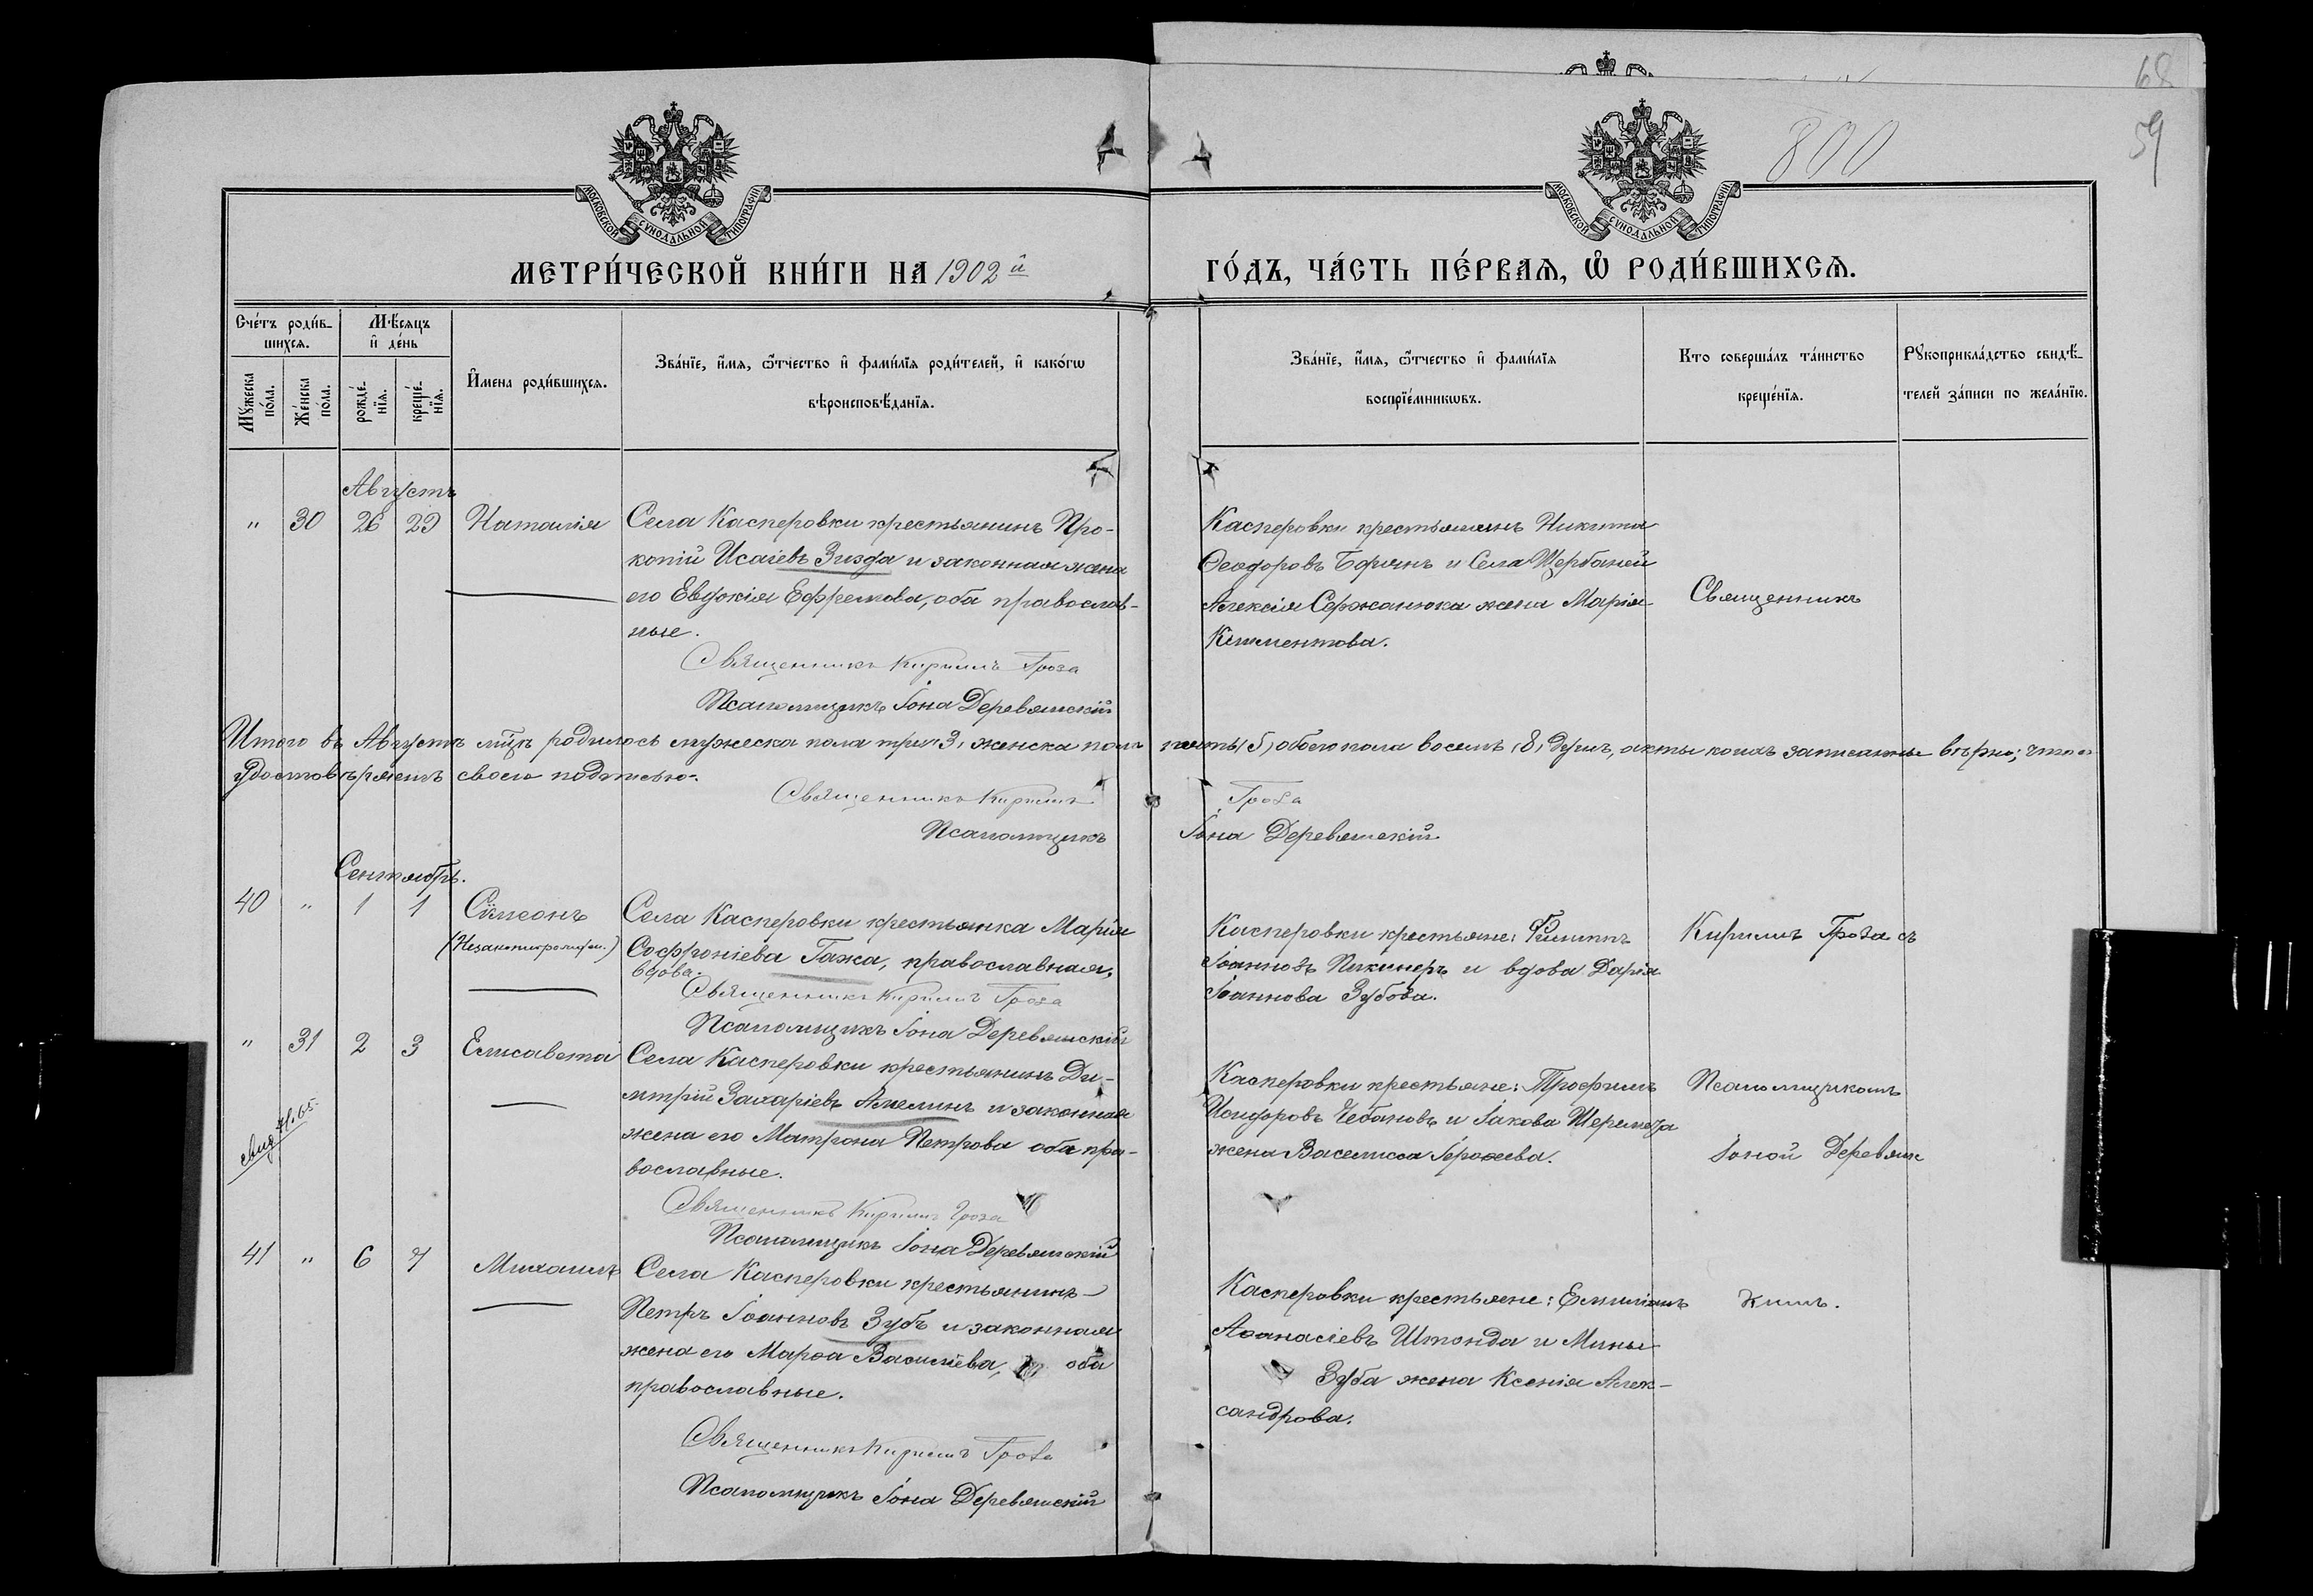 68
59
800
МОСКОВСКОЙ СѴНОДАЛЬНОЙ ТИПОГРАФІИ
МОСКОВСКОЙ СѴНОДАЛЬНОЙ ТИПОГРАФІИ
МЕТРИ́ЧЕСКОЙ КНИ́ГИ НА 1902й
ГО́ДЪ, ЧА́СТЬ ПЕ́РВАѦ, Ѡ РОДИ́ВШИХСѦ.
Сче́тъ роди́в-
шихсѧ.
Мꙋ́жеска по́ла.
Же́нска по́ла.
Мѣ́сѧцъ
и де́нь
рожде́-
нїѧ.
креще́-
нїѧ.
И҆мена роди́вшихсѧ.
Зва́нїе, и҆́мѧ, ѻ҆́тчество и҆ фами́лїѧ роди́телей, и҆ како́гѡ
вѣроисповѣ́данїѧ.
Зва́нїе, и҆́мѧ, ѻ҆́тчество и҆ фами́лїѧ
воспрїе́мникѡвъ.
Кто соверша́лъ та́инство
креще́нїѧ.
Рꙋкоприкла́дство свидѣ́-
телей за́писи по жела́нїю.
Августъ
" 30 26 29 Наталія
Села Касперовки крестьянинъ Про-
копій Исаіевъ Зизда и законная жена
его Евдокія Ефремова, оба православ-
ные.
Священникъ Кириллъ Гроза
Псаломщикъ Іона Деревянскій
Касперовки крестьянинъ Никита
Ѳеодоровъ и Села Щербаней
Алексія Сержанюка жена Марія
Климентова.
Священникъ
Итого въ Августѣ мѣсц родилось мужеска пола три 3, женска пола пять (5) обоего пола восемь (8) душъ, акты коихъ записанные вѣрно; что и
удостовѣряемъ своею подписью.
Священникъ Кириллъ Гроза
Псаломщикъ Іона Деревянскій
Сентябрь.
40 " 1 1 Сѵмеонъ
Села Касперовки крестьянка Марія
Софроніева Гажа, православная,
вдова.
Священникъ Кириллъ Гроза
Псаломщикъ Іона Деревянскій
Касперовки крестьяне: Филиппъ
Іоанновъ Пикинеръ и вдова Дарія
Іоаннова Зубова.
Кириллъ Гроза съ
" 31 2 3 Елисавета
Села Касперовки крестьянинъ Ди-
митрій Захаріевъ Амелинъ и законная
жена его Матрона Петрова оба пра-
вославные.
Священникъ Кириллъ Гроза
Псаломщикъ Іона Деревянскій
Касперовки крестьяне: Трофимъ
Чебановъ и Іакова Шеремета
жена Василисса Іероѳеева.
Псаломщикомъ
Іоной Деревянс
41 " 6 7 Михаилъ
Села Касперовки крестьянинъ
Петръ Іоанновъ Зубъ и законная
жена его Марѳа Василіева, оба
православные.
Священникъ Кириллъ Гроза
Псаломщикъ Іона Деревянскій
Касперовки крестьяне: Емиліанъ
Аѳанасіевъ Штонда и Мины
Зуба жена Ксенія Алек-
сандрова.
кимъ.